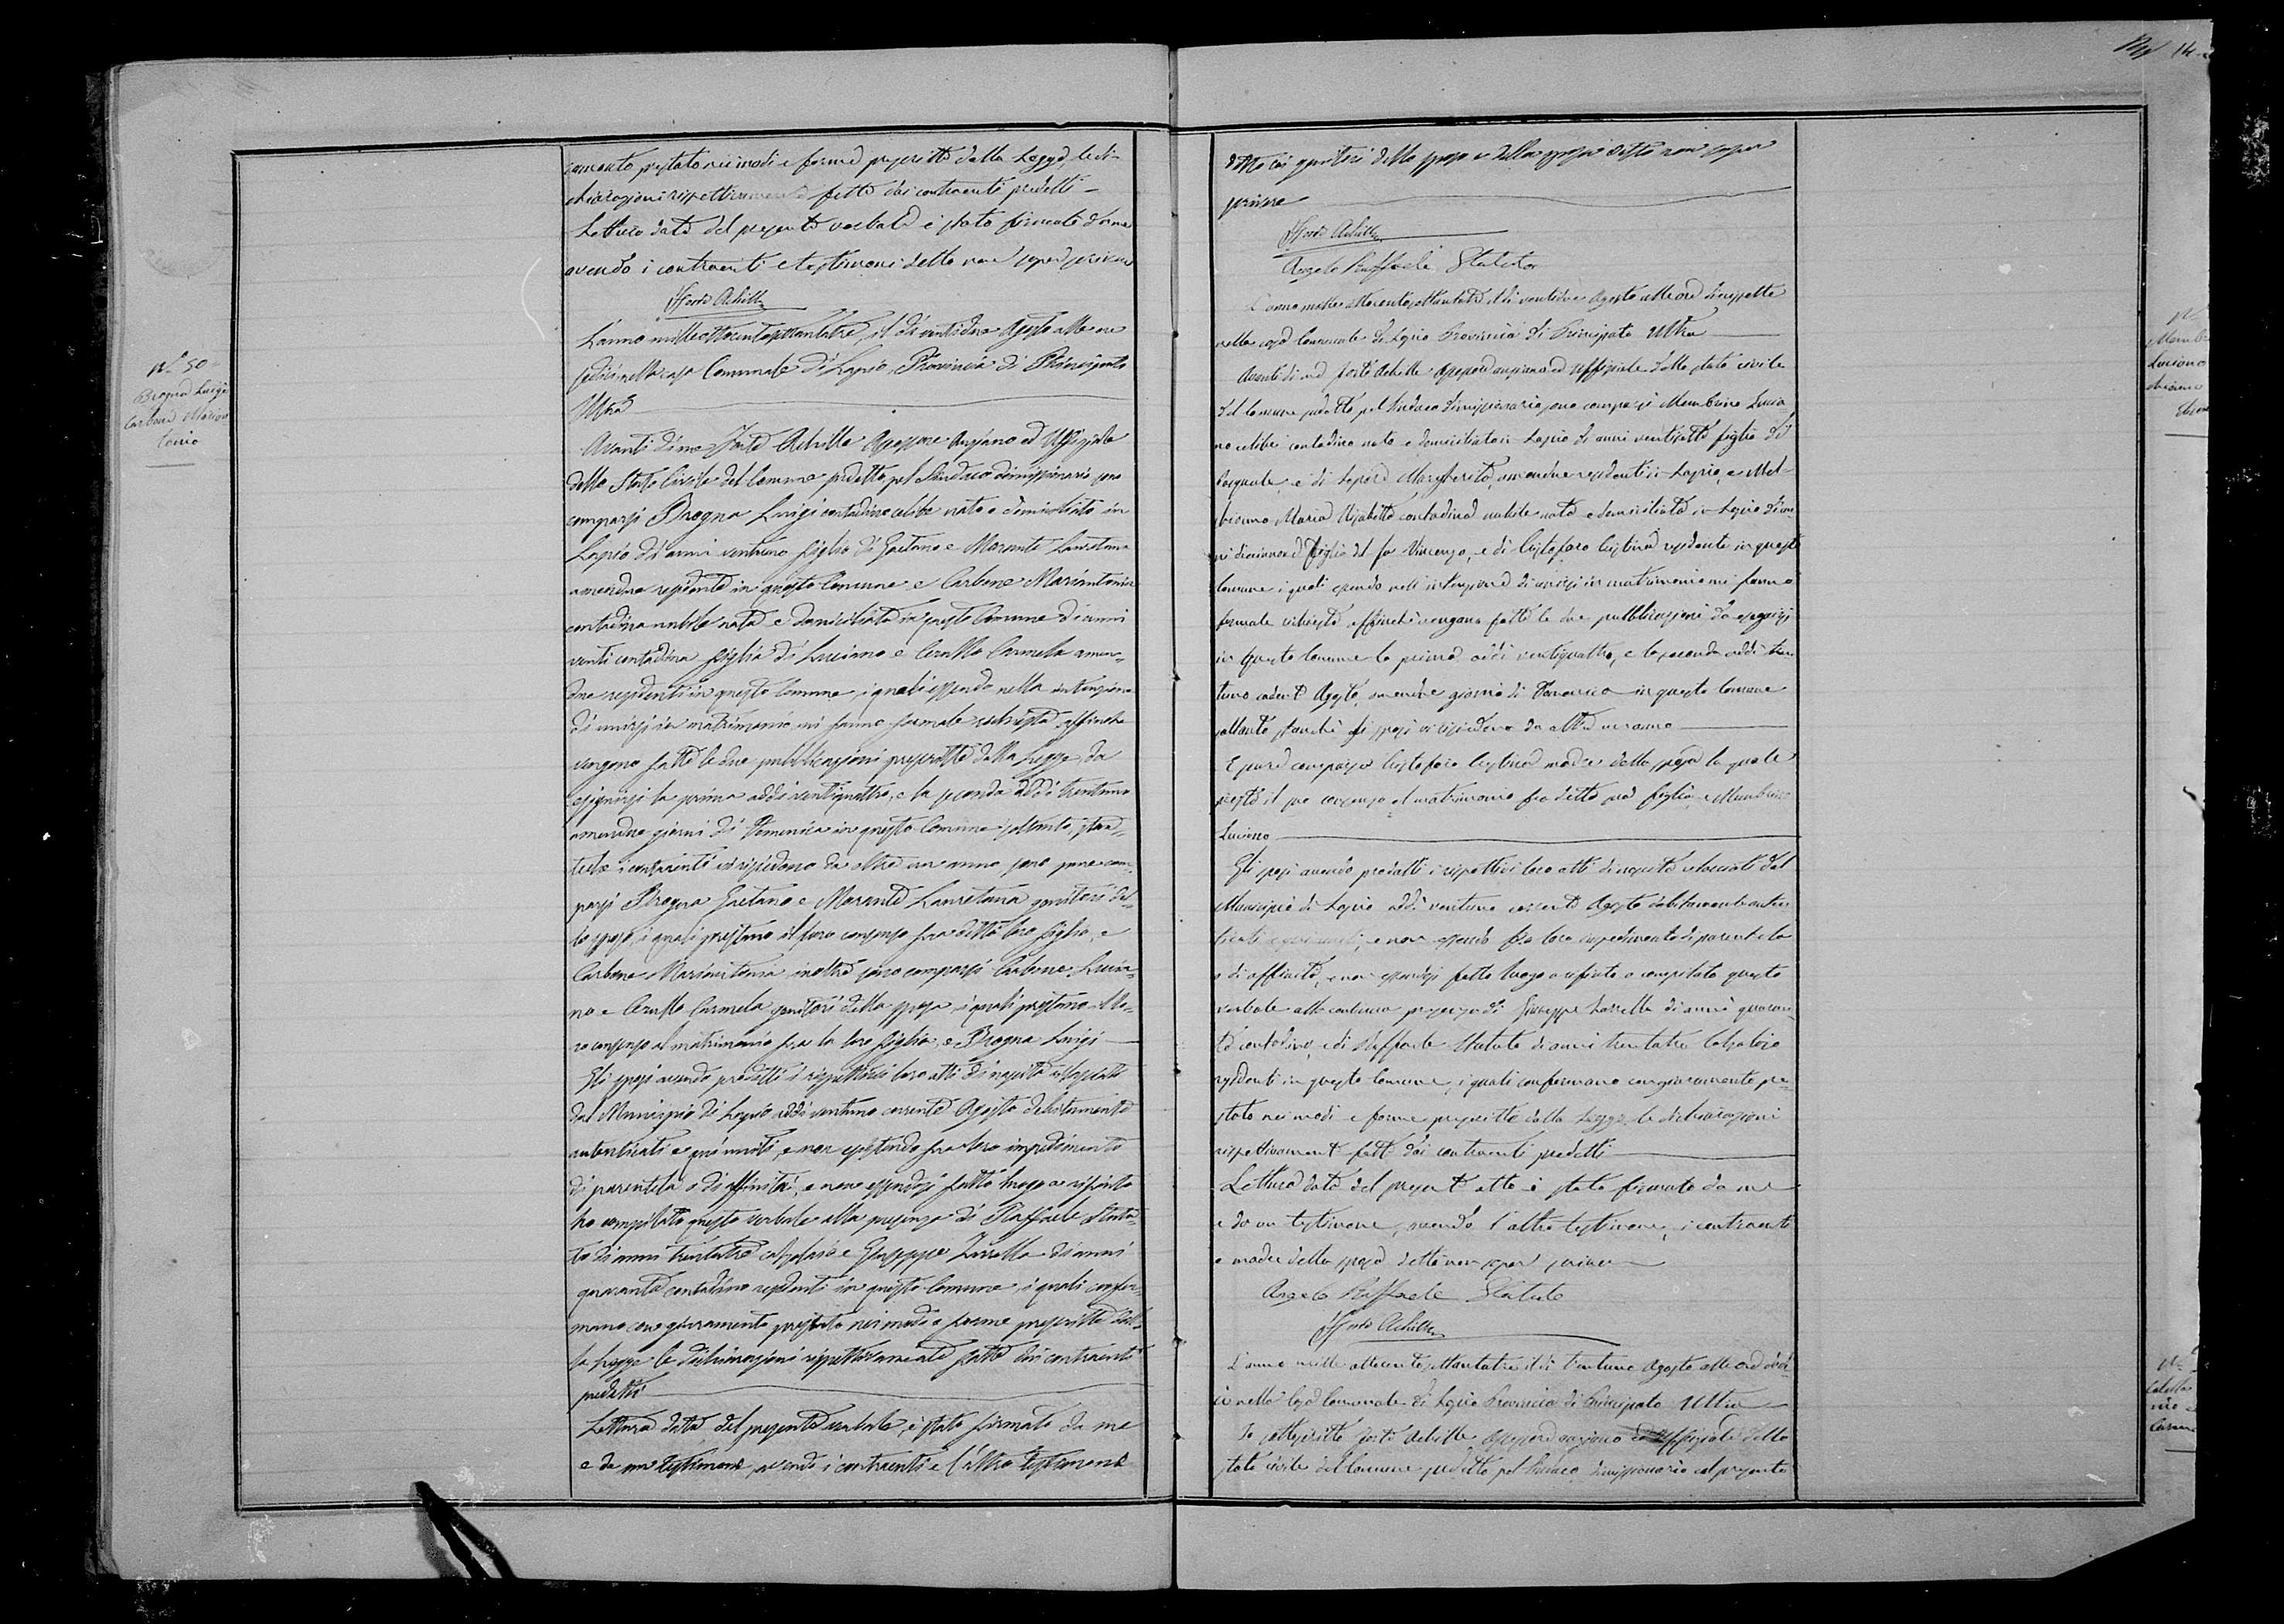 N.° 50
Brogna Luigi
Carbone Marian
tonia
ramento prestato nei modi e forme prescritte dalla Legge le di-
chiarazioni rispettivamente fatte dai contraenti predetti -
Lettura data del presente verbale è stato firmato da me
avendo i contraenti e testimoni detto non saper scrivere
Forte Achille
L'anno milleottocentosettantatre, il dì ventidue Agosto alle ore
sedici nella casa Comunale di Lapio, Provincia di Principato
Ultra
Avanti di me Forte Achille Assessore Anziano ed Uffiziale
dello Stato Civile del Comune predetto, pel Sindaco dimissionario sono
comparsi Brogna Luigi contadino celibe nato e domiciliato in
Lapio di anni ventuno figlio di Gaetano e Morante Lauretana
amendue residenti in questo Comune e Carbone Mariantonia
contadina nubile nata e domiciliata in questo Comune di anni
venti contadina figlia di Luciano e Cerullo Carmela amen-
due residenti in questo Comune, i quali essendo nella intenzione
di unirsi in matrimonio mi fanno formale richiesta affinche
vengano fatte le due pubblicazioni prescritte dalla Legge, da
eseguirsi la prima addì ventiquattro, e la seconda addì trentuno
amendue giorni di Domenica in questo Comune soltanto, stan-
teche i contraenti vi risiedono da oltre un anno sono pure com-
parsi Brogna Gaetano e Morante Lauretana genitori del-
lo sposo, i quali prestano il loro consenso fra detto loro figlio, e
Carbone Mariantonia, inoltre sono comparsi Carbone Lucia-
no e Cerullo Carmela genitori della sposa, i quali prestano il lo-
ro consenso al matrimonio fra la loro figlia, e Brogna Luigi
Gli sposi avendo prodotti i rispettivi loro atti di nascita rilasciati
dal Municipio di Lapio addì ventuno corrente Agosto debitamente
autenticati e premuniti, e non esistendo fra loro impedimento
di parentela o di affinità, e non essendosi fatto luogo a rifiuto
ho compilato questo verbale alla presenza di Raffaele Statu-
to di anni trentatre calzolaio e Giuseppe Zarrella di anni
quaranta contadino residenti in questo Comune, i quali confer-
mano con giuramento prestato nei modi e forme prescritte dal-
la Legge le dichiarazioni rispettivamente fatte dai contraenti
predetti
Lettura data del presente verbale, è stato firmato da me
e da un testimone, avendo i contraenti e l'altro testimone
detto coi genitori dello sposo e della sposa detto non saper
scrivere
Forte Achille
Angelo Raffaele Statuto
L'anno mille ottocentosettantatre il dì ventidue Agosto alle ore diciassette
nella casa Comunale di Lapio Provincia di Principato Ultra
Avanti di me Forte Achille Assessore anziano ed Uffiziale dello stato civile
del Comune predetto pel Sindaco dimissionario sono comparsi Membrino Lucia-
no celibe contadino nato e domiciliato in Lapio di anni ventisette figlio di
Pasquale, e di Lepore Margherita, amendue residenti in Lapio, e
Maria Elisabetta contadina nubile nata e domiciliata in Lapio di an-
ni diciannove figlia del fu Vincenzo, e di Cristofaro Cristina residente in questo
Comune i quali essendo nell'intenzione di unirsi in matrimonio mi fanno
formale richiesta affinchè vengano fatte le due pubblicazioni da eseguirsi
in questo Comune la prima addì ventiquattro, e la seconda addì tren
tuno cadente Agosto, amendue giorni di Domenica in questo Comune
soltanto stanchè gli sposi vi risiedono da oltre un anno
È pure comparsa Cristofaro Cristina madre della sposa la quale
presta il suo consenso al matrimonio fra detta sua figlia e Membrino
Luciano
Gli sposi avendo prodotti i rispettivi loro atti di nascita rilasciati dal
Municipio di Lapio addì ventuno corrente Agosto debitamente auten
ticati e premuniti, e non essendo fra loro impedimento di parentela
o di affinità, e non essendosi fatto luogo a rifiuto ho compilato questo
verbale alla continua presenza di Giuseppe Zarrella di anni quaran-
ta contadino, e di Raffaele Statuto di anni trentatre Calzolaio
residenti in questo Comune, i quali confermano con giuramento pre-
stato nei modi e forme prescritte dalla Legge le dichiarazioni
rispettivamente fatte dai contraenti predetti
Lettura data del presente atto è stato firmato da me
e da un testimone, avendo l'altro testimone, i contraenti
e madre della sposa detto non saper scrivere
Angelo Raffaele Statuto
Forte Achille
L'anno mille ottocentosettantatre il dì trentuno Agosto alle ore
nella Casa Comunale di Lapio Provincia di Principato Ultra
Io sottoscritto Forte Achille Assessore anziano ed Uffiziale dello
stato civile del Comune predetto pel Sindaco dimissionario col presente
Luciano